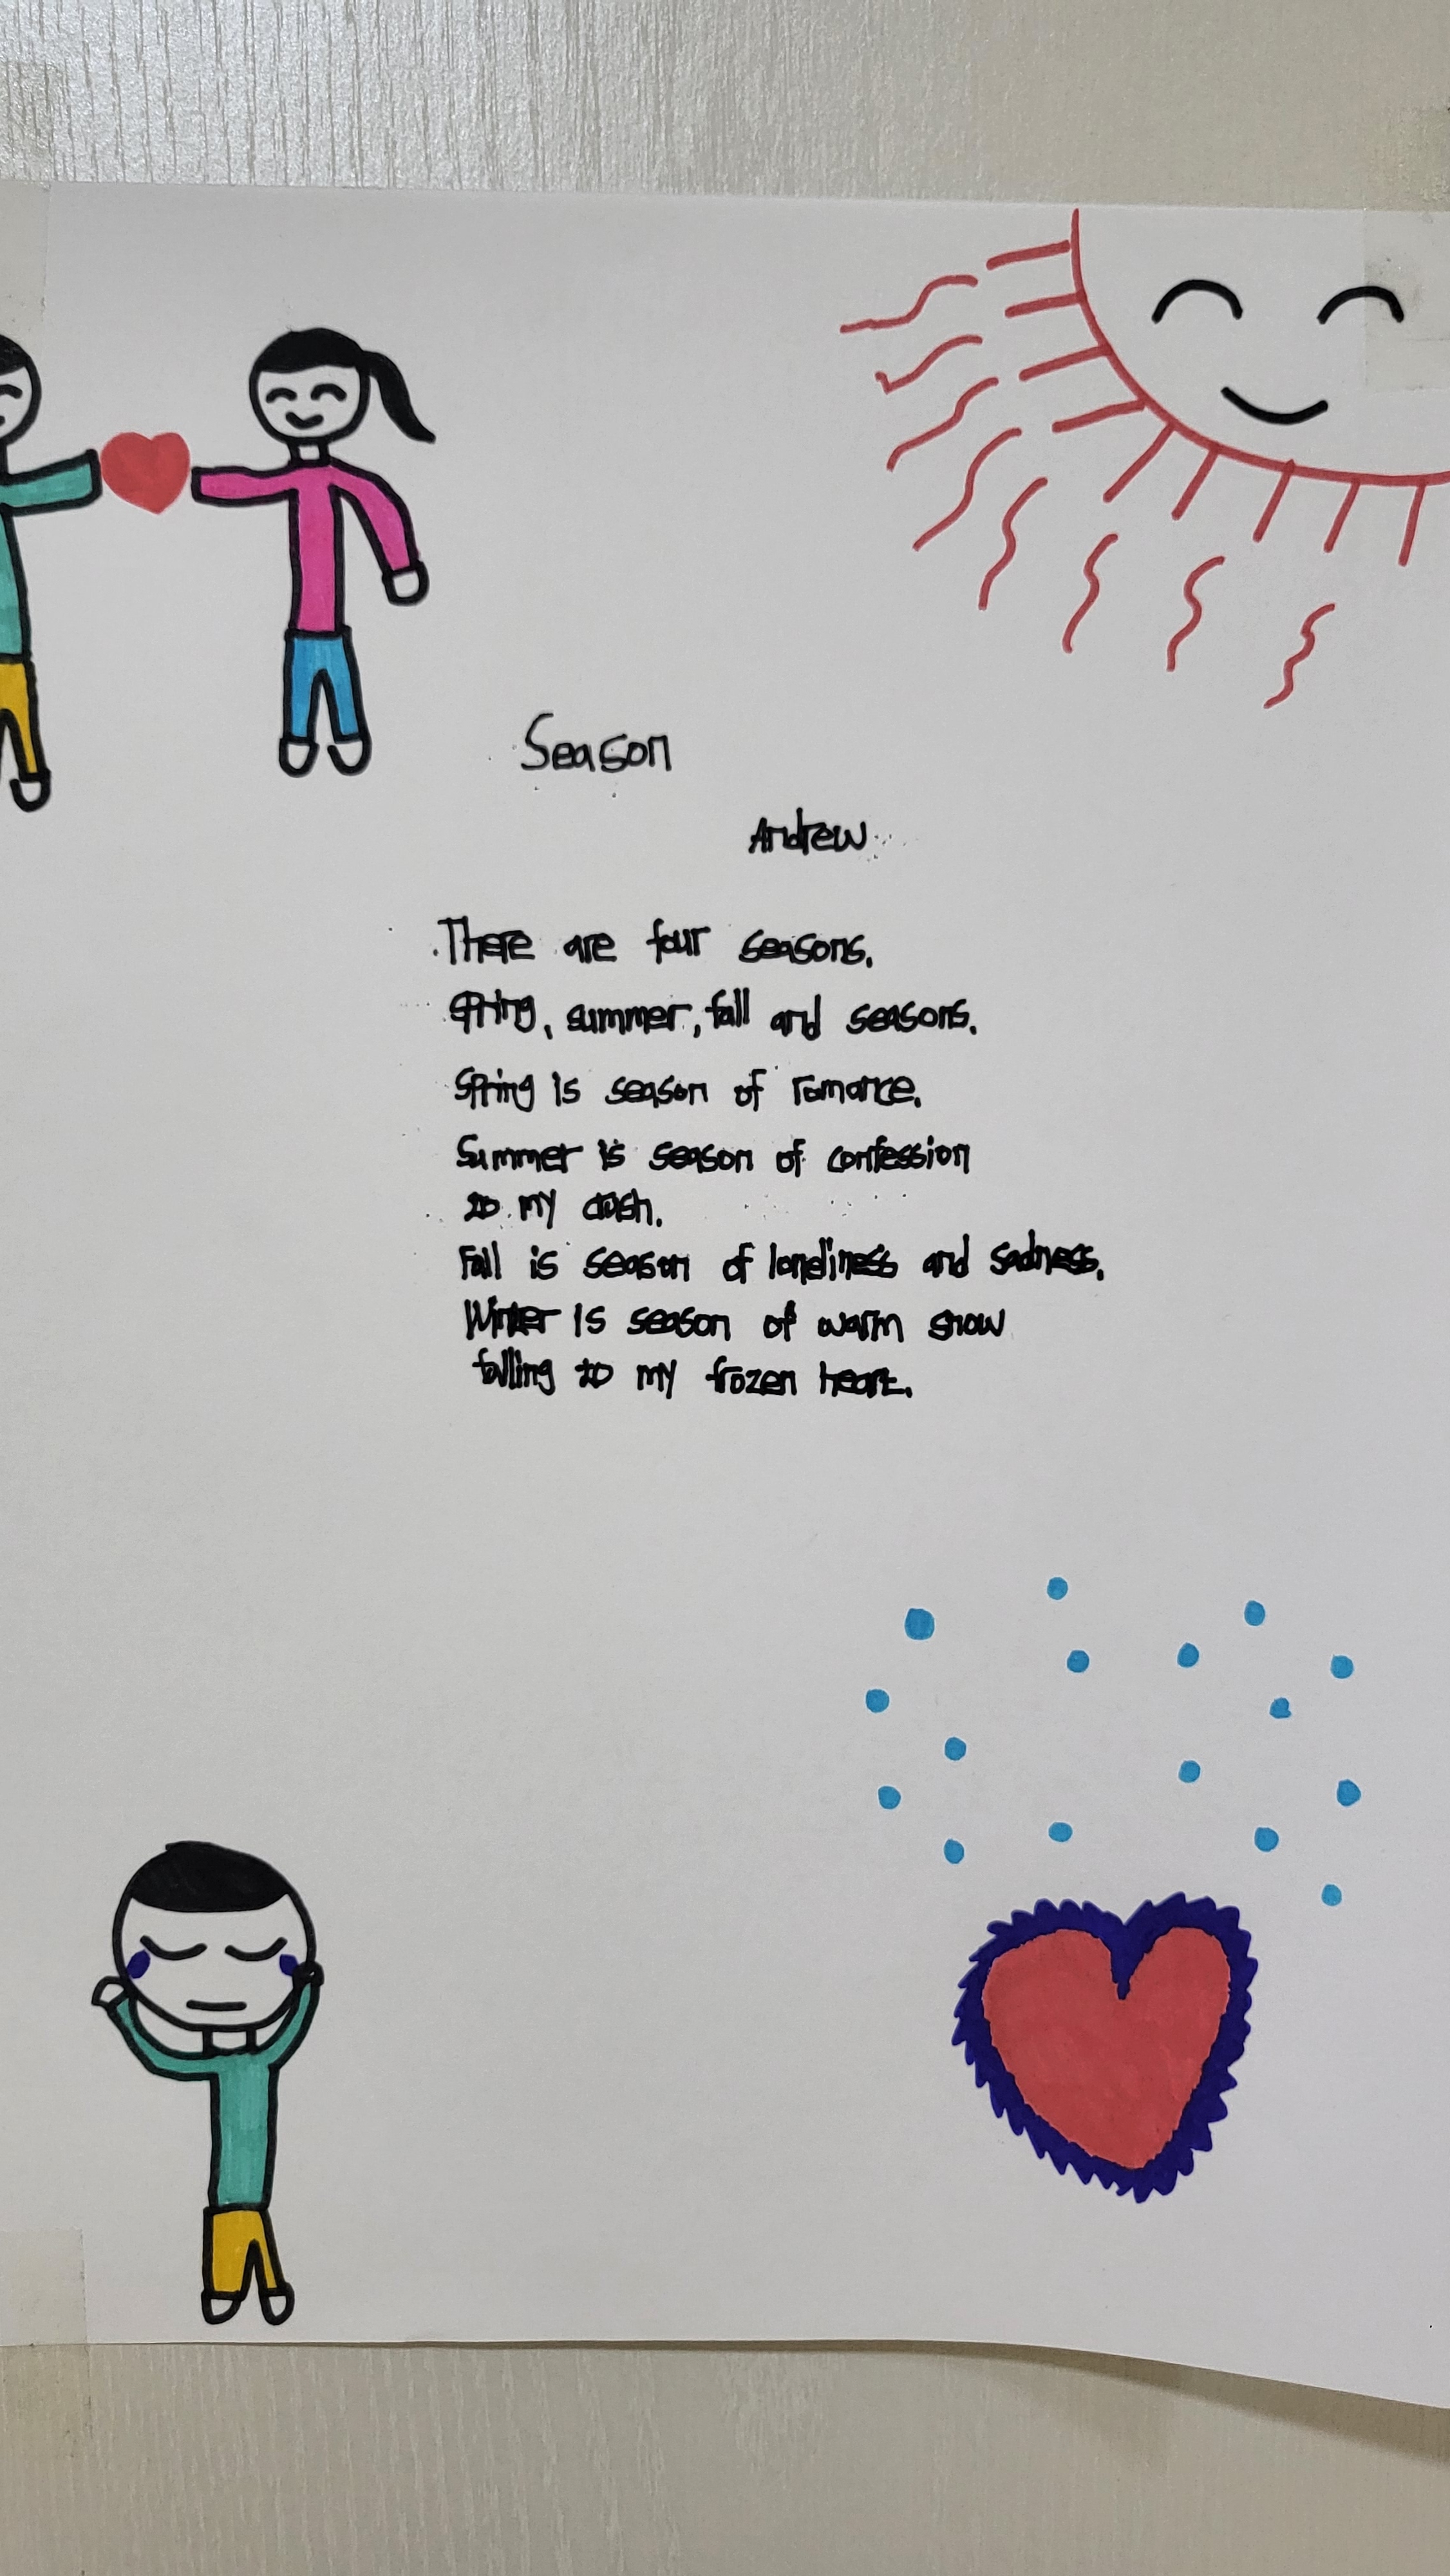 Season
Andrew
There are four seasons.
Spring, summer, fall and seasons.
Spring is season of romance.
Summer is season of confession
to my crush.
Fall is season of loneliness and sadness.
Winter is season of warm snow
falling to my frozen heart.